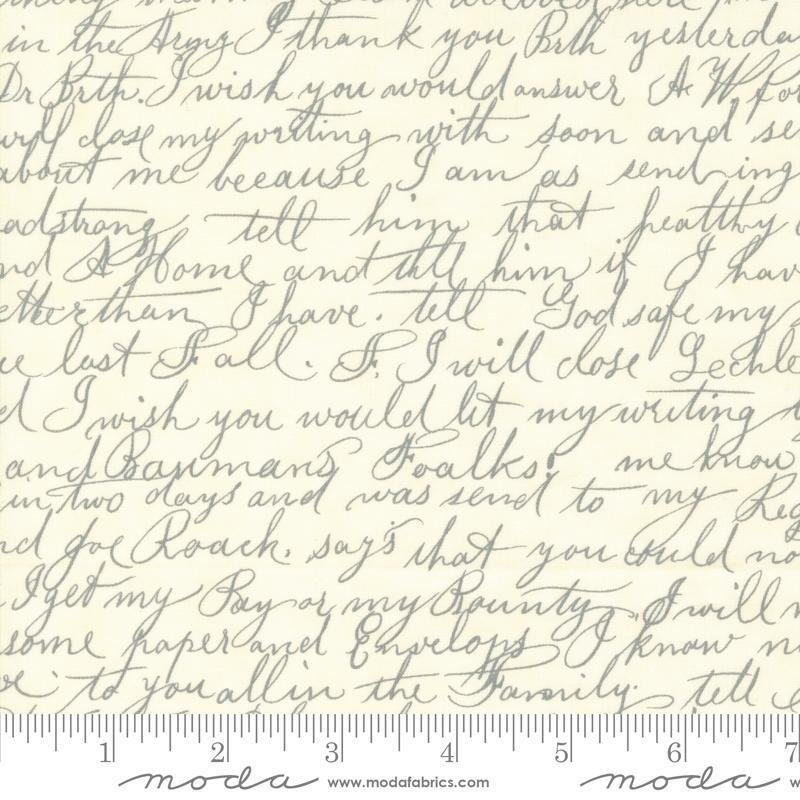 in the Army I thank you Brth yesterda
Dr Brth. I wish you would answer A W. for
will close my writing with soon and se
about me because I am as sending
adstrong tell him that healthy
nd A Home and tell him if I hav
etter than I have. tell God safe my
ue last Fall. F. I will close Lechle
d I wish you would let my writing
and Baumans Foalks! me know
in two days and was send to my Reg
nd Joe Roach. say's that you could no
I get my Pay or my Bounty I will
some paper and Envelops I know n
to you all in the Family. tell
1 2 3 4 5 6 7
moda www.modafabrics.com moda w